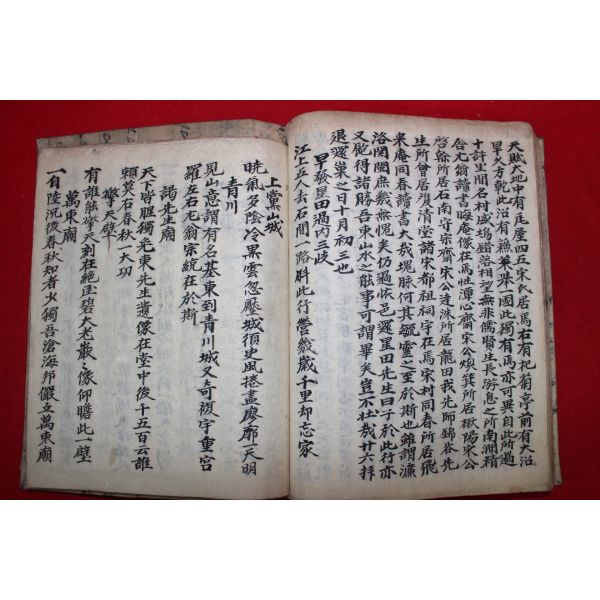 天賦大地中有瓦屋四五宋氏居焉右有杞菊亭前有大沼
旱乆方乾此沿有漁箄舉一國此獨有焉亦可異自此所過
十許里間名村盛塢錯落相望無非儒賢生長游息之所南澗積
舍尤翁讀書晦庵像在焉性潭心齋宋公煩箕所居楸陽宋公
啓榦所居石南守宗齋宋公達洙所居龍田我先師錦谷先
生所曾居復清堂諸宋都祖祠宇在焉宋村同春所居飛
来庵同春讀書大哉塊脉何其毓靈之至於斯也雖謂濂
洛関閩庶幾無愧矣仍過依邑還星田先生曰子於此行亦
又飽得諸勝吾東山水之能事可謂畢矣豈不壮哉廿六拜
退還巢之日十月初三也
早發星田過內三歧
江上五人去石間一路斜此行營幾歲千里却忘家
上黨山城
曉氣多陰冷黒雲忽壓城須臾風捲盡廖廓一天明
青川
見山意謂有名基東到青川城又奇複宇重宮
羅左右尤翁宗統在於斯
謁先正廟
天下皆腥獨光東先生遺像在堂中後千五百云誰
頼莫石春秋一大功
擎天壁
有誰能擎天到在絶厓碧大老巖〻像仰瞻此一壁
萬東廟
一自陸沉後春秋知者少獨吾滄海邦儼立萬東廟